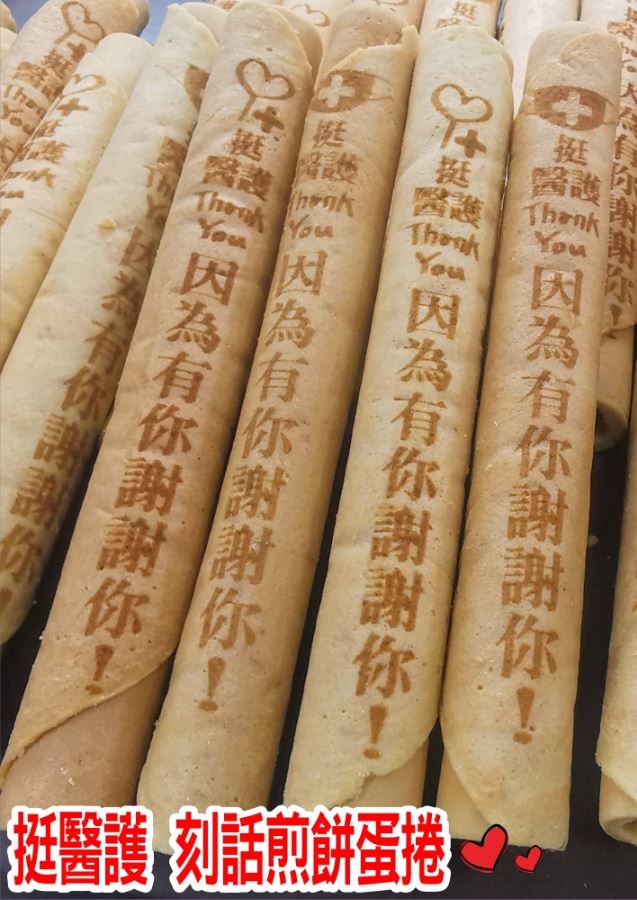 挺
醫護
Thank
You
因為有你謝謝你！
挺
醫護
Thank
You
因為有你謝謝你！
挺
醫護
Thank
You
因為有你謝謝你！
挺
醫護
Thank
You
因為有你謝謝你！
挺醫護 刻話煎餅蛋捲